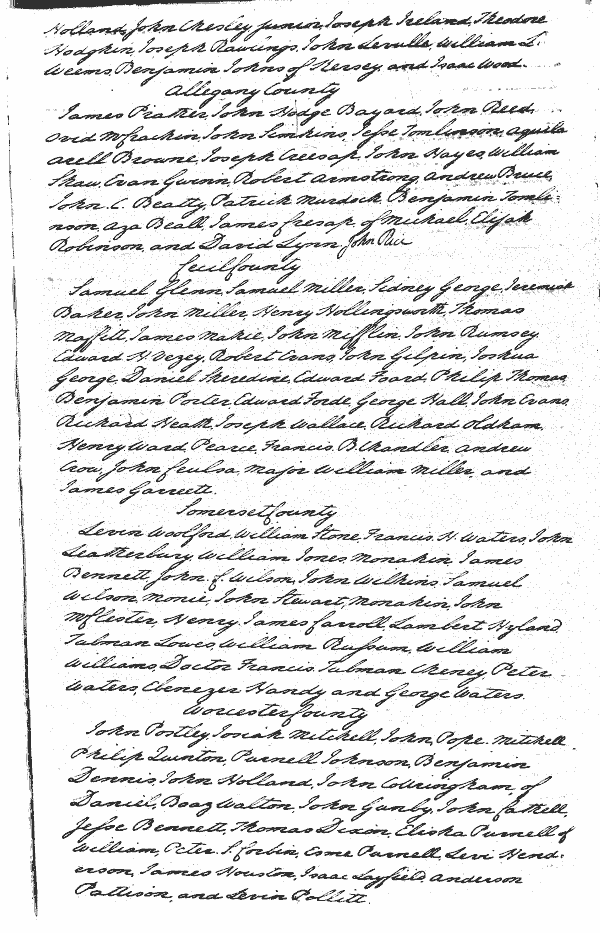 Holland, John Chesley junior, Joseph Ireland, Theodore
Hodgkin, Joseph Rawlings, John Leveille, William L.
Weems, Benjamin Johns of Kersey, and Isaac Wood.
Allegany County
James Prather, John Hodge Bayard, John Reed,
Ovid McCrackin, John Simkins, Jesse Tomlinson, Aquila
Arell Browne, Joseph Creesap, John Hayes, William
Shaw, Evan Gwinn, Robert Armstrong, Andrew Bruce,
John C. Beatty, Patrick Murdock, Benjamin Tomli-
nson, Aza Beall, James Cresap, of Michael, Elijah
Robinson, and David Lynn, John Rice
Cecil County
Samuel Glenn, Samuel Miller, Sidney George, Jeremiah
Baker, John Miller, Henry Hollingsworth, Thomas
Maffitt, James Makie, John Mifflin, John Rumsey,
Edward H. Vezey, Robert Evans, John Gilpin, Joshua
George, Daniel Sheredine, Edward Foard, Philip Thomas,
Benjamin Porter, Edward Forde, George Hall, John Evans,
Richard Heath, Joseph Wallace, Richard Oldham,
Henry Ward Pearce, Francis B. Chandler, Andrew
Crow, John Ceulsa, Major William Miller, and
James Garrett.
Somerset County
Levin Woolford, William Stone, Francis H. Waters, John
Leatherbury, William Jones, Monakin, James
Bennett, John C. Wilson, John Wilkins, Samuel
Wilson, Monie, John Stewart, Monakin, John
McClester, Henry James Carroll, Lambert Hyland,
Tubman Lowes, William Russum, William
Williams, Doctor Francis Tubman Cheney, Peter
Waters, Ebenezer Handy and George Waters.
Worcester County
John Postley, Josiah Mitchell, John Pope Mitchell
Philip Quinton, Purnell Johnson, Benjamin
Dennis, John Holland, John Cottringham, of
Daniel, Boaz Walton, John Gunby, John Cathell,
Jesse Bennett, Thomas Dixon, Elisha Purnell of
William, Peter S. Corbin, Esme Purnell, Levi Hend-
erson, James Houston, Isaac Layfield, Anderson
Pattison, and Levin Pollitt.